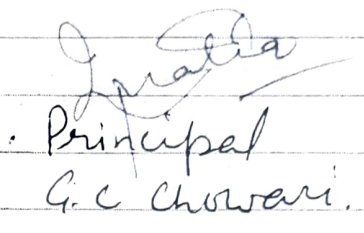 Principal
G.C Chowari.